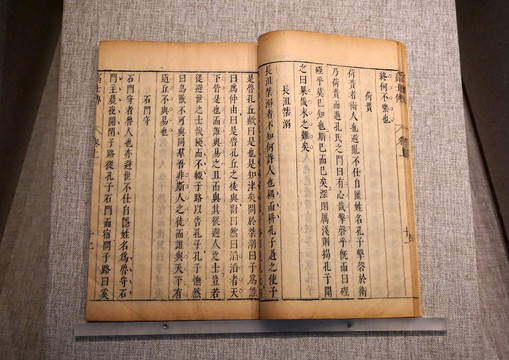 高士傳 卷上
終何不樂也
荷蕢
荷蕢者衛人也避亂不仕自匿姓名孔子擊磬於衛
乃荷蕢而過孔氏之門曰有心哉擊磬乎旣而曰硜
硜乎莫已知也斯已而已矣深則厲淺則揭孔子聞
之曰果哉末之難矣
長沮桀溺
長沮桀溺者不知何許人也耦而耕孔子過之使子
是魯孔丘歟曰是也是知津矣問於桀溺曰子為誰
曰為仲由曰是魯孔丘之徒與對曰然曰滔滔者天
下皆是也而誰與易之且而與其從避人之士豈若
從避世之士哉耰而不輟子路以告孔子孔子憮然
曰鳥獸不可與同羣吾非斯人之徒而誰與天下有
道丘不與易也
石門守
石門守者魯人也亦避世不仕自隱姓名為魯守石
門主晨夜開閉子路從孔子石門而宿問子路曰奚
高士傳 卷上